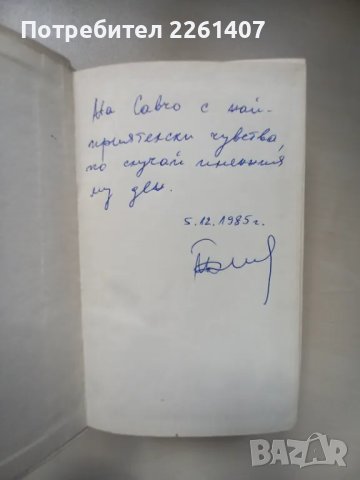 Потребител 2261407
На Савчо с най-
приятелски чувства,
по случай именния
му ден.
5.12.1985г.
BAZAR